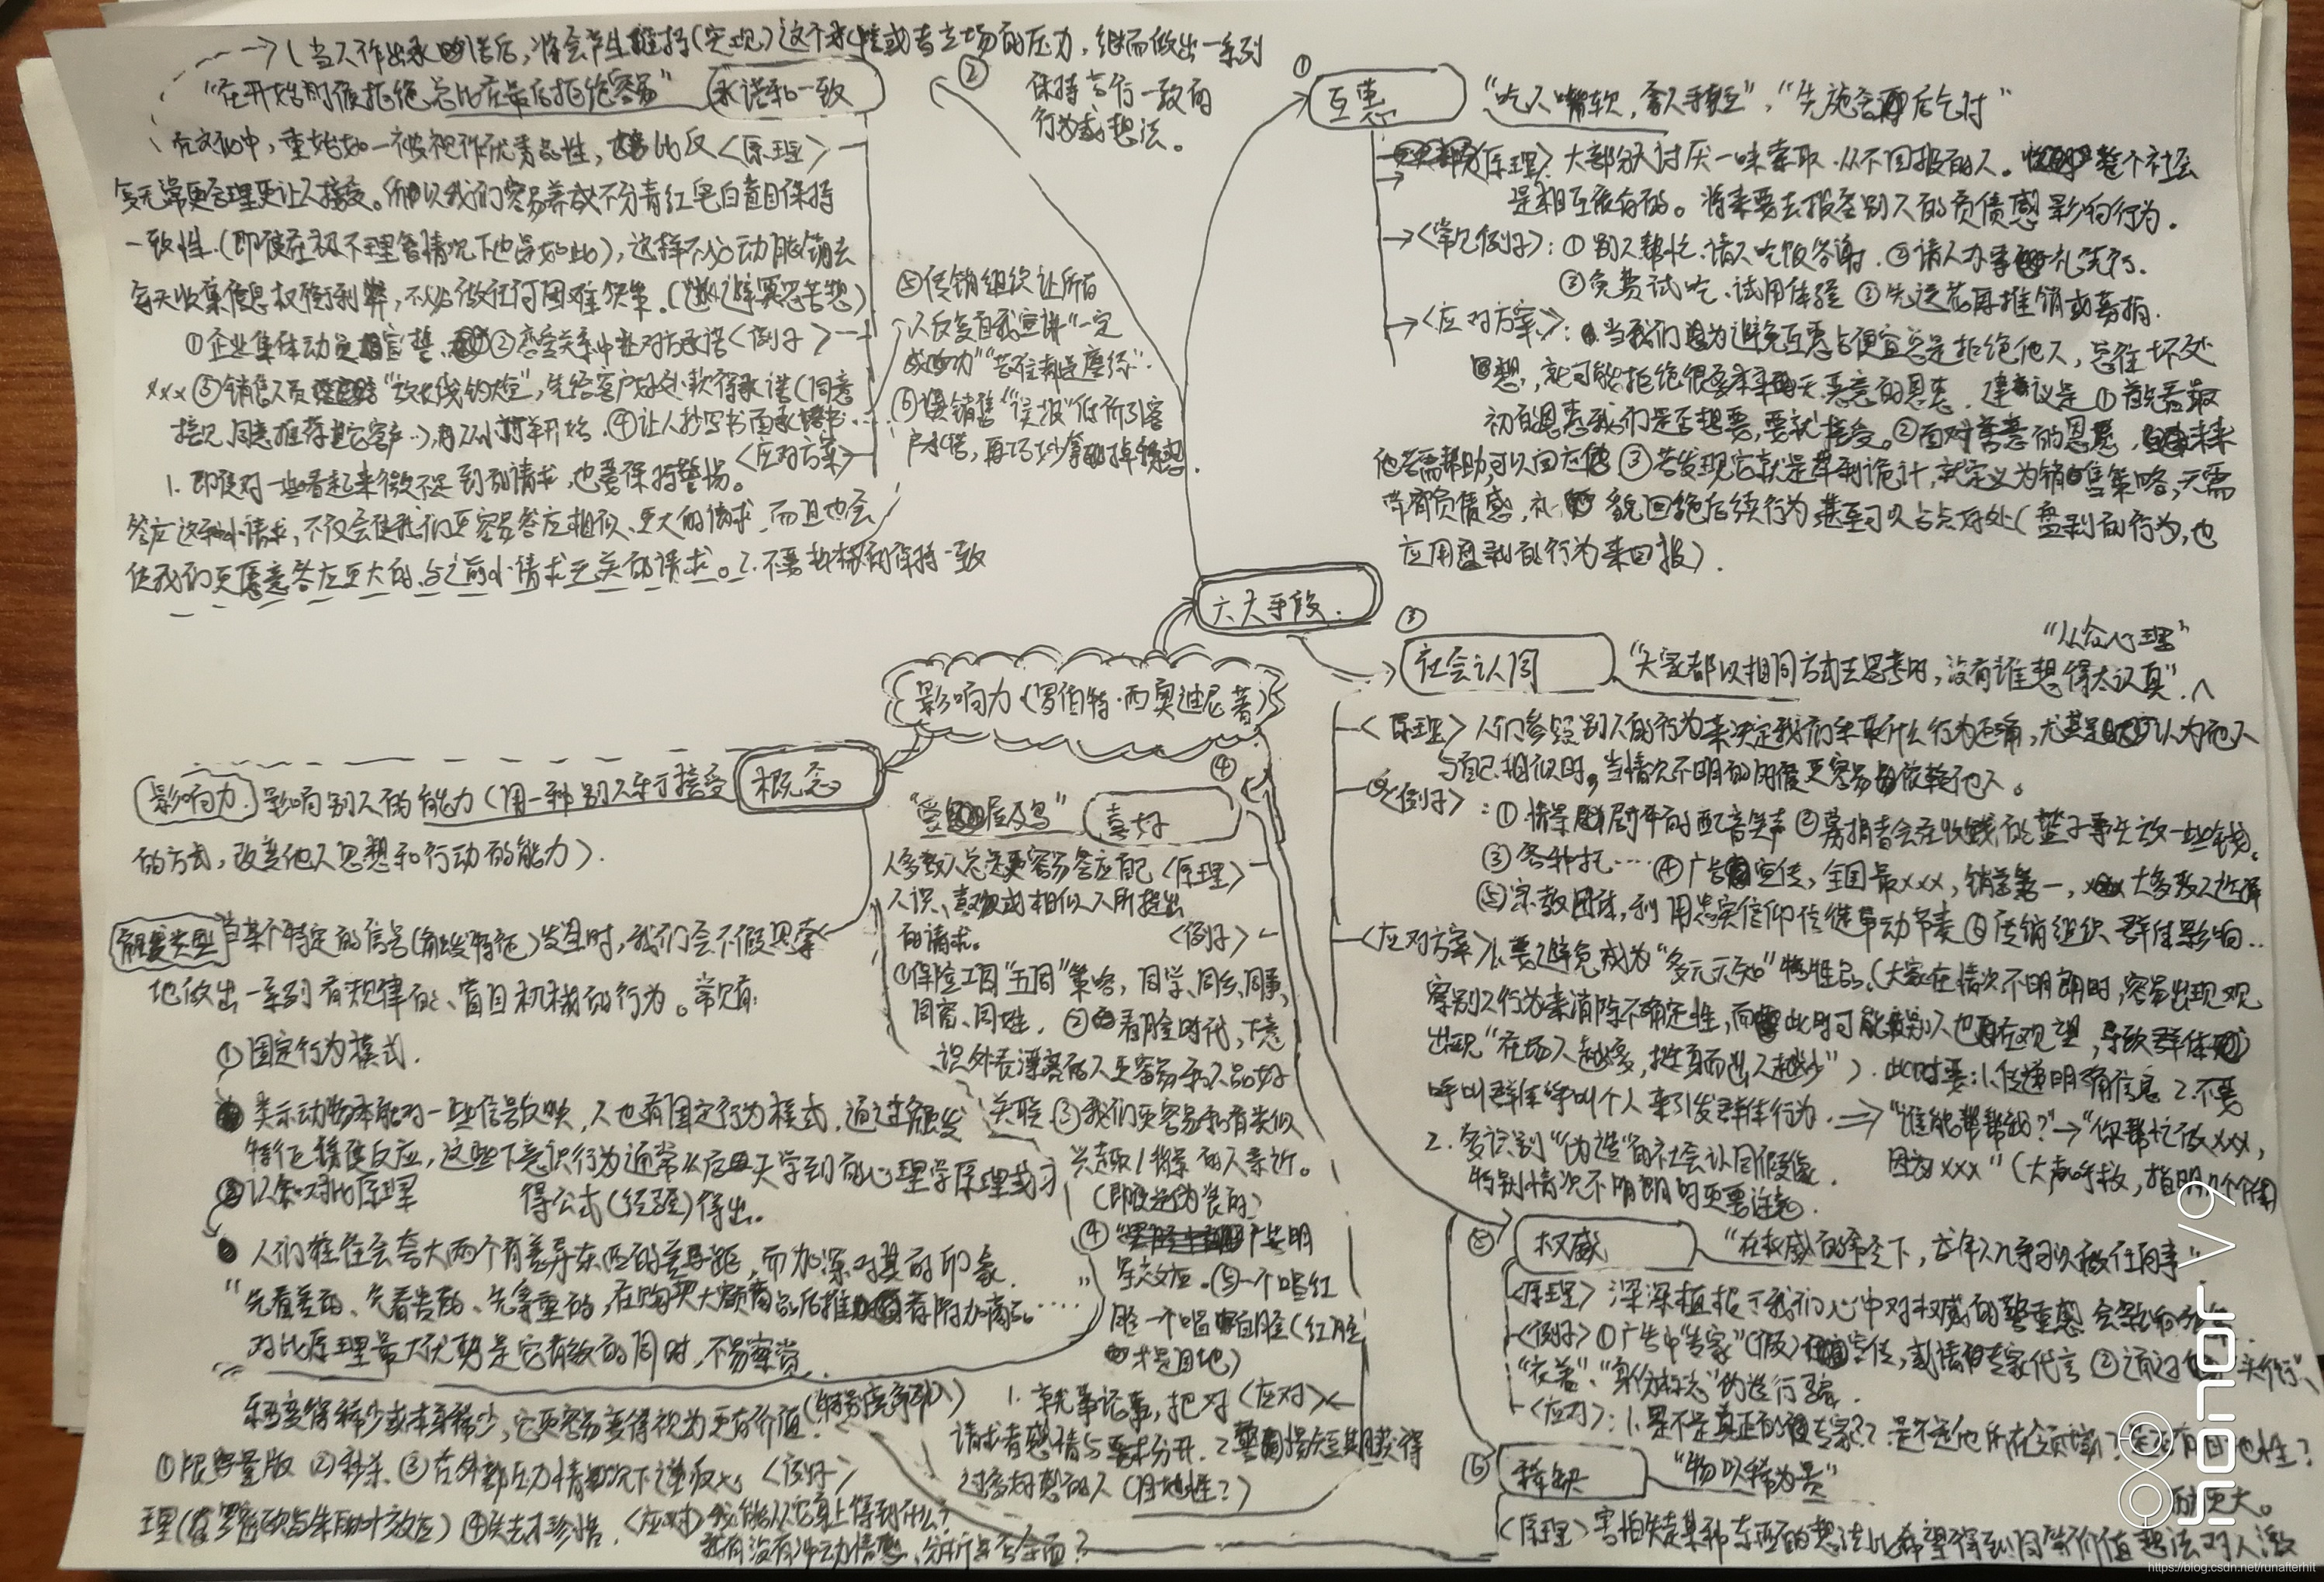 影响力(罗伯特·西奥迪尼 著)
六大手段:
①
互惠
"吃人嘴软,拿人手短","先施舍再后乞讨"
<原理>大部分人讨厌一味索取、从不回报的人。整个社会
是相互依存的。将来要去报答别人的负债感影响行为。
<常见例子>:①别人帮忙、请人吃饭答谢.②请人办事 礼先行.
③免费试吃、试用体验 ③先送花再推销或募捐.
<应对方案>:当我们因为避免互惠占便宜总是拒绝他人,总往坏处
想,就可能拒绝很多本来无恶意的恩惠.建议是①首先看最
初的恩惠我们是否想要,要就接受。②面对善意的恩惠,未来
他若需帮助,可以回应他 ③若发现它就是牟利诡计,就定义为销售策略,无需
带有负债感,礼貌回绝后续行为 甚至可以占点好处(盘剥的行为,也
应用盘剥的行为来回报).
②
承诺和一致
当人作出承诺后,将会产生维持(实现)这个承诺或者立场的压力,继而做出一系列
保持言行一致的
行为或想法。
"在开始时候拒绝总比在最后拒绝容易"
<原理>
在文化中,重始如一被视作优秀品性,比反
复无常更合理更让人接受。所以我们容易养成不分青红皂白盲目保持
一致性.(即使在极不理智情况下也是如此),这样不必动脑筋去
每天收集信息权衡利弊,不必做任何困难决策.(避冥思苦想)
<例子>
①企业集体动员宣誓.②恋爱关系中让对方承诺
xxx ③销售人员"放长线钓大鱼",先给客户好处 软得承诺(同意
接见、同意推荐其它客户..),再从小订单开始.④让人抄写书面承诺书...
⑤传销组织让所有
人反复自我宣讲"一定
成功""苦难都是磨练"..
⑥误销售"误报"低价引客
户承诺,再巧妙拿掉
<应对方案>
1.即使对一些看起来微不足到的请求,也要保持警惕。
答应这种小请求,不仅会使我们更容易答应相似、更大的请求,而且也会
使我们更愿意答应更大的、与之前小请求无关的请求。2.不要机械的保持一致
③
社会认同
"从众心理"
"大家都以相同方式去思考时,没有谁想得太认真".
<原理>人们参照别人的行为来决定我们采取什么行为正确,尤其是 认为他人
与自己相似时,当情况不明的时候更容易依赖他人。
<例子>:①情景剧中的配音笑声 ②募捐者会在收钱的篮子事先放一些钱.
③各种托.... ④广告宣传,全国最xxx,销售第一,大多数人选择
⑤宗教团体,利用忠实信仰信徒带动节奏 ⑥传销组织 群体影响..
<应对方案>1.要避免成为"多元无知"牺牲品.(大家在情况不明朗时,容易出现观
察别人行为来消除不确定性,而此时可能别人也在观望,导致群体
出现"在场人越多,挺身而出人越少").此时要:1.传递明确信息 2.不要
呼叫群体 呼叫个人 来引发群体行为.⇒"谁能帮帮我?"→"你帮忙做xxx,
因为xxx"(大声呼救,指明
2.多识别"伪造"的社会认同假象.
特别情况不明朗时更要注意.
④
喜好
"爱屋及乌"
<原理>
人多数人总是更容易答应自己
人识、喜欢或相似人所提出
的请求。
<例子>
①保险工司"五同"策略,同学、同乡、同事、
同窗、同姓.②看脸时代,下意
识外表漂亮的人更容易和人品好
关联 ③我们更容易和有类似
兴趣/背景的人亲近。
(即使是伪装的)
④ 广告明
星效应.⑤一个唱红
脸一个唱白脸(红脸
才是目地)
<应对>
1.就事论事,把对
请求者感情与要求分开.2.警惕短期获得
过多好感的人(目地性?)
⑤
权威
"在权威的命令下,成年人几乎可以做任何事"
<原理>深深植根于我们心中对权威的尊重感
<例子>①广告中"专家"(假)宣传,或请的专家代言 ②通过 头衔"、
"衣着"、"身份标志"伪造行骗.
<应对>:1.是不是真正的专家?2.是不是他所在领域? 目地性?
⑥
稀缺
"物以稀为贵"
<原理>害怕失去某种东西的想法比希望得到同等价值想法对人激
的更大。
东西变得稀少或本来稀少,它更容易变得视为更有价值.
<例子>
①限容量版 ②秒杀.③在外部压力情况下逆反心
理(罗密欧与朱丽叶效应)④失去才珍惜.<应对>我能从它身上得到什么?
我有没有冲动情感、分析是否全面?
概念
影响力
影响别人的能力(用一种别人乐于接受
的方式,改变他人思想和行动的能力).
触发类型
当某个特定的信号(触发特征)发生时,我们会不假思索
地做出一系列有规律的、盲目机械的行为。常见有:
①固定行为模式.
类示动物本能对一些信号反映,人也有固定行为模式,通过触发
特征 情使反应,这些下意识行为通常从后天学到的心理学原理或习
得公式(经验)得出。
②认知对比原理
人们往往会夸大两个有差异东西的差距,而加深对其的印象.
"先看差的、先看贵的、先拿重的,在购买大额商品后推荐附加商品....."
对比原理最大优势是它有效的同时,不易察觉.
honor V9
https://blog.csdn.net/runafterhit